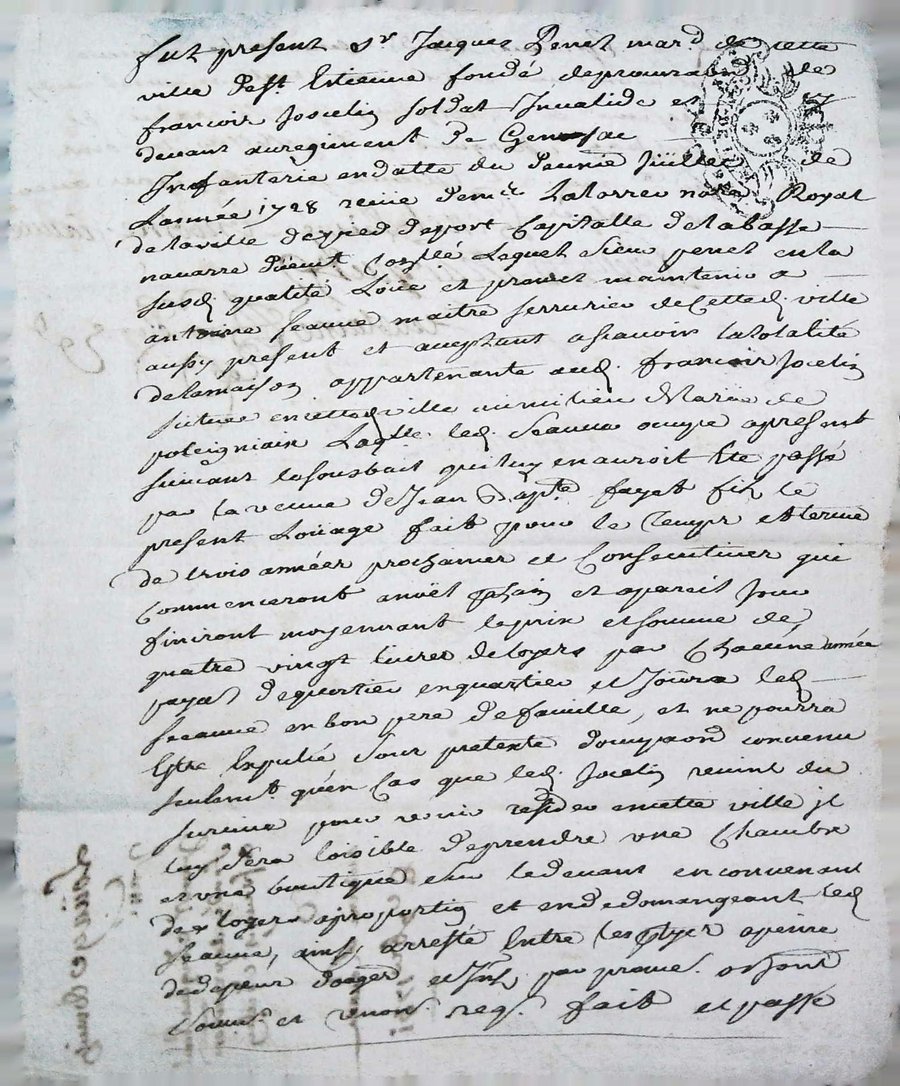 fut present Sr Jacques Penet mard de cette
ville de st Estienne fondé de procuraon de
francois Joscelin soldat Invalide et cy
devant au regiment de Gensac
Infanterie en datte du Juillet de
Lannée 1728 receue de me Latorre nore Royal
de la ville de pied de port Capitalle de la basse
navarre duement Lequel sieur penet en la
susd. qualité Loüe et promet maintenir a
antoine Jeanne maitre serrurier de Cette d. ville
aussy present et acceptant ascavoir la totalité
de la maison appartenante aud. francois Jocelin
situee en cette d. ville au milieu de la rüe de
poleigniaix Laqlle. led. Jeanne occupe apresent
suivant le sousbait qui luy en auroit Eté passé
par la veuve de Jean Bapte. fayet fix le
present Loüage fait pour le Temps et terme
de trois années prochaines et Consecutives qui
Commenceront a noël et a pareil Jour
finiront moyennant le prix et somme de
quatre vingt livres de loyers par Chacune année
payab de quartier en quartier et Joüira led.
Jeanne en bon pere de famille, et ne pourra
Estre Expulsé sous pretexte convenu
seulemt. qu'en Cas que led. Jocelin revint du
service pour venir resider en cette ville il
luy sera loisible de prendre une Chambre
et une boutique sur le devant en convenant
des loyers a proportion et en dedomageant led.
Jeanne, ainsy arresté Entre les ptyes a peine
de depens domges et Ints. par promes. obligaons
soumis. et renons. reqs. fait et passé